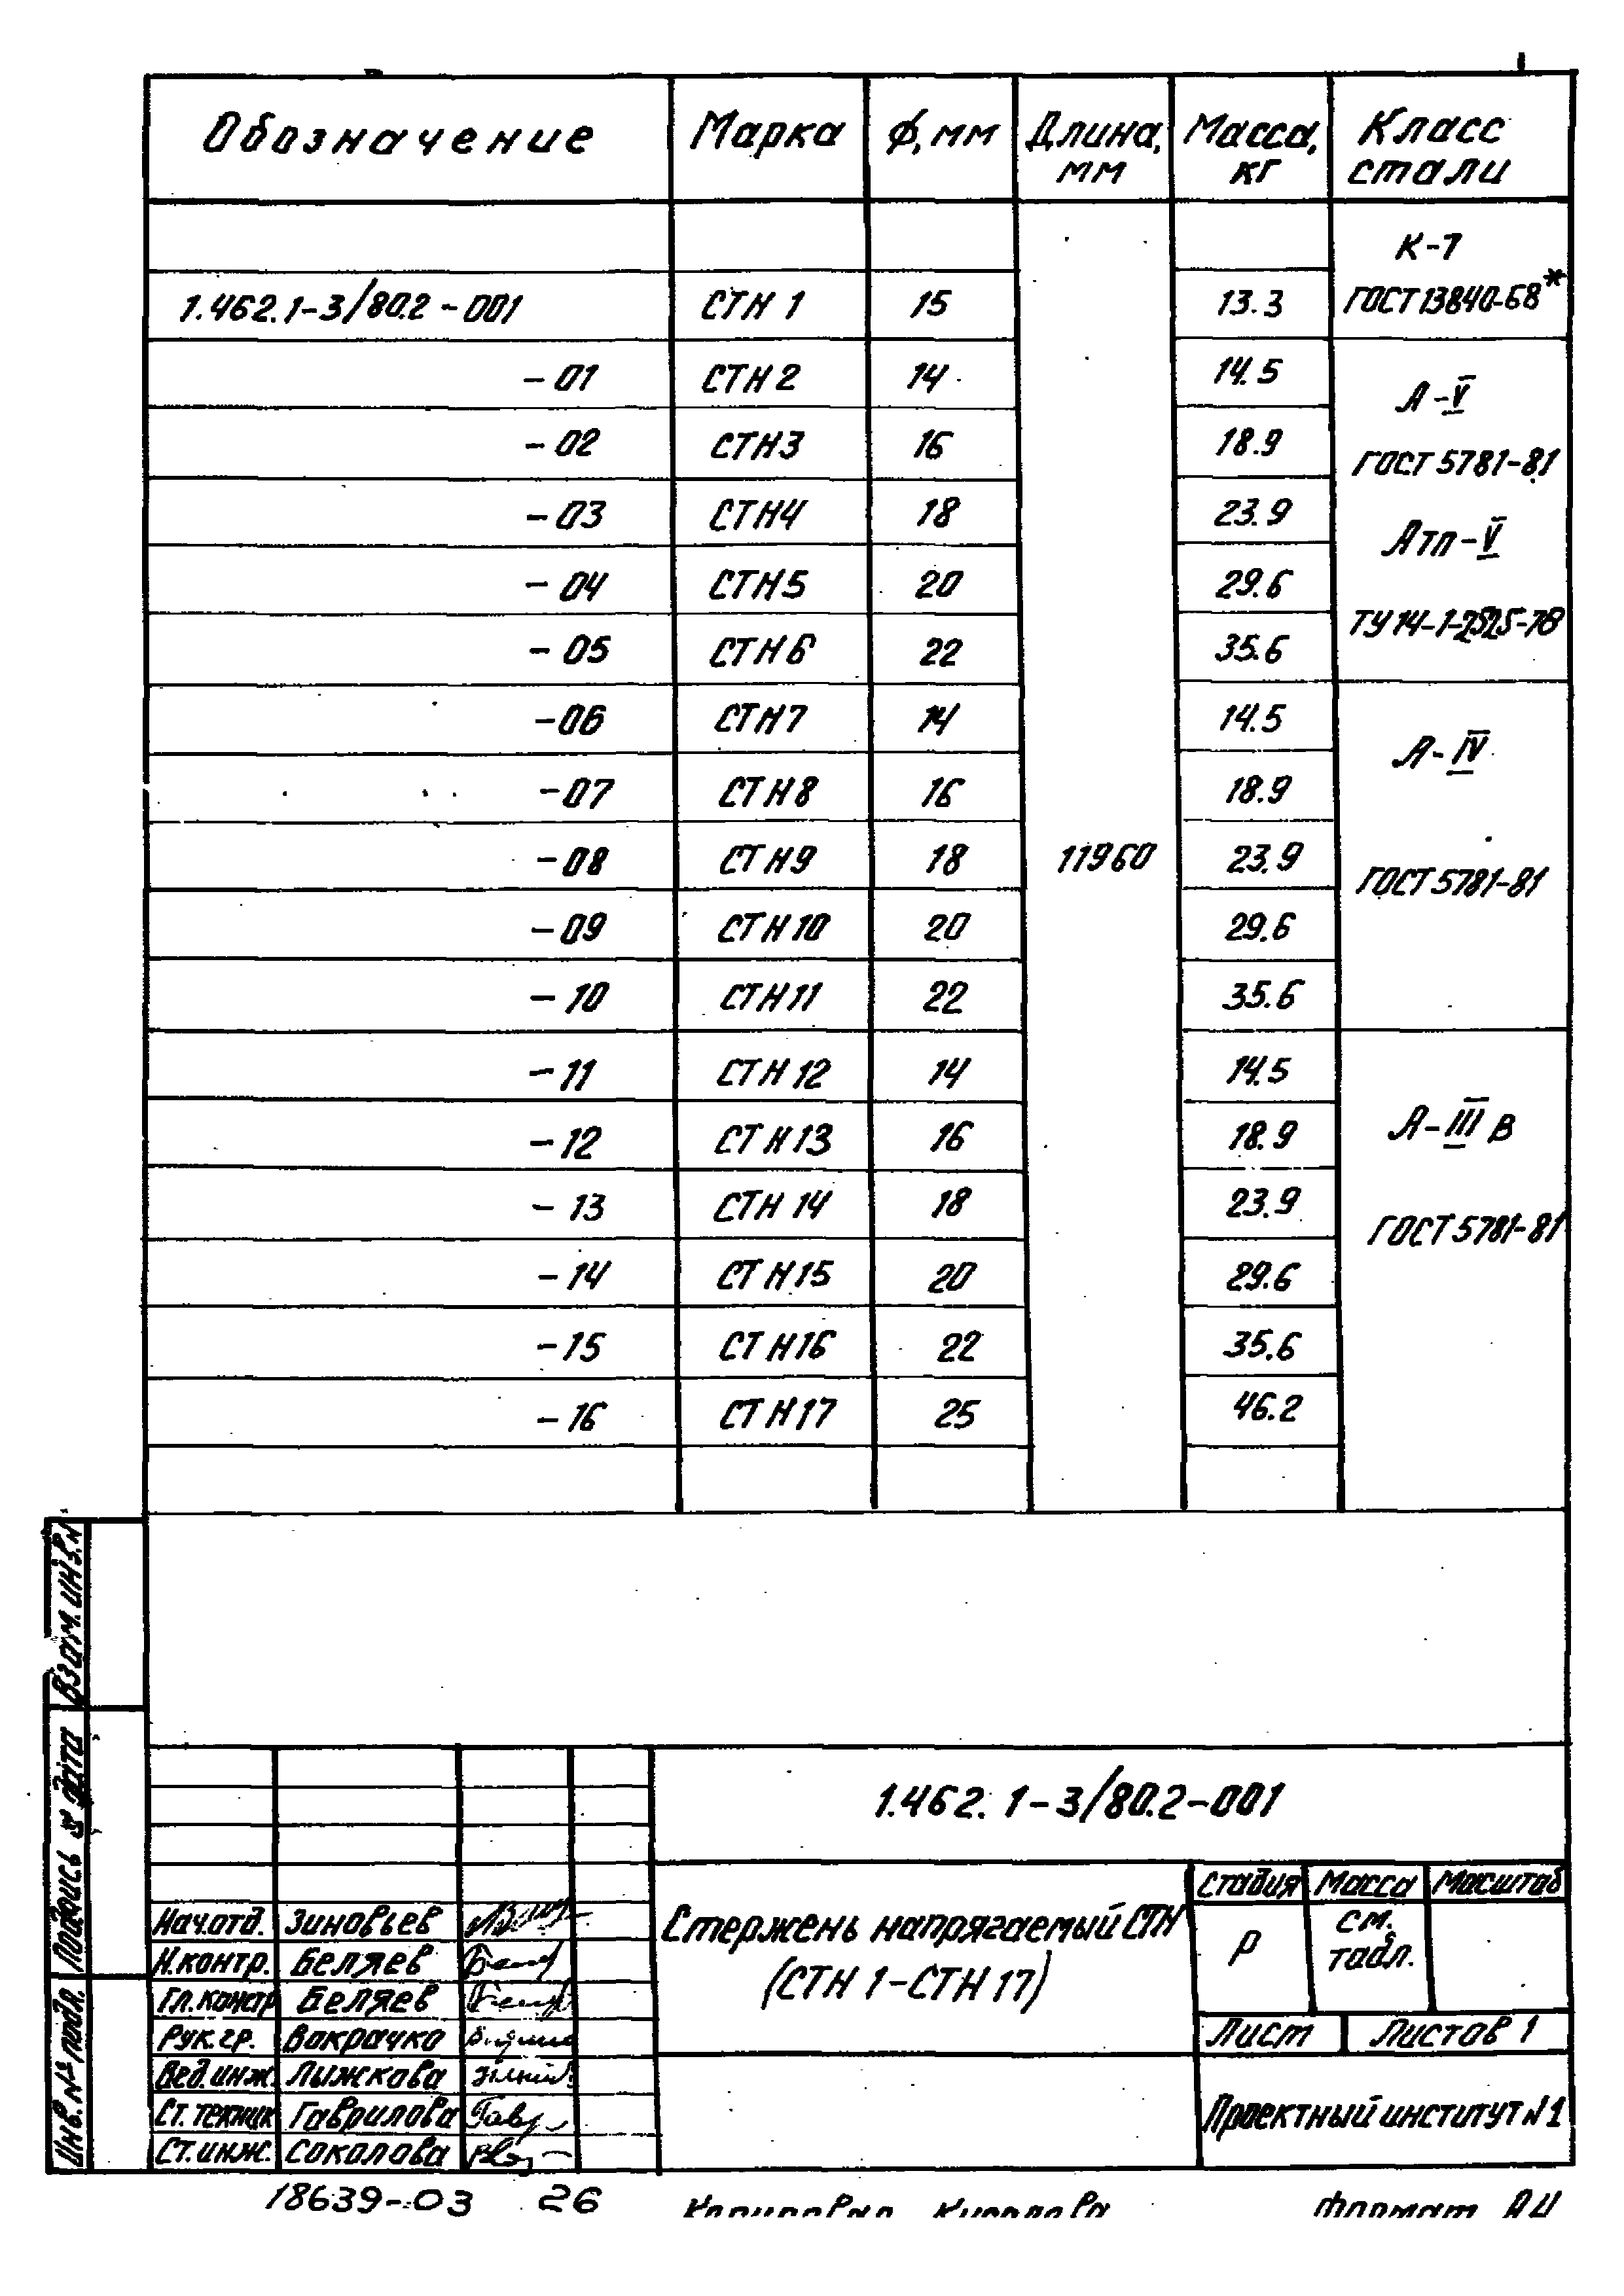 Обозначение Марка Ф, мм Длина, мм Масса, кг Класс стали
К-7
1.462.1-3/80.2-001 СТН 1 15 13.3 ГОСТ 13840-68*
-01 СТН 2 14 14.5
А-V
-02 СТН 3 16 18.9
ГОСТ 5781-81
-03 СТН 4 18 23.9
Атп-V
-04 СТН 5 20 29.6
ТУ 14-1-2525-78
-05 СТН 6 22 35.6
-06 СТН 7 14 14.5
А-IV
-07 СТН 8 16 18.9
-08 СТН 9 18 11960 23.9
ГОСТ 5781-81
-09 СТН 10 20 29.6
-10 СТН 11 22 35.6
-11 СТН 12 14 14.5
А-III в
-12 СТН 13 16 18.9
-13 СТН 14 18 23.9
ГОСТ 5781-81
-14 СТН 15 20 29.6
-15 СТН 16 22 35.6
-16 СТН 17 25 46.2
Взам. инв. №
Подпись и дата
Инв. № подл.
1.462.1-3/80.2-001
Стержень напрягаемый СТН
(СТН 1-СТН 17)
Стадия Масса Масштаб
Р см. табл.
Лист Листов 1
Проектный институт №1
Нач.отд. Зиновьев
Н.контр. Беляев
Гл.констр Беляев
Рук.гр. Вакрачко
Вед.инж. Лыжкова
Ст.техник Гаврилова
Ст.инж. Соколова
18639-03 26
Формат А4